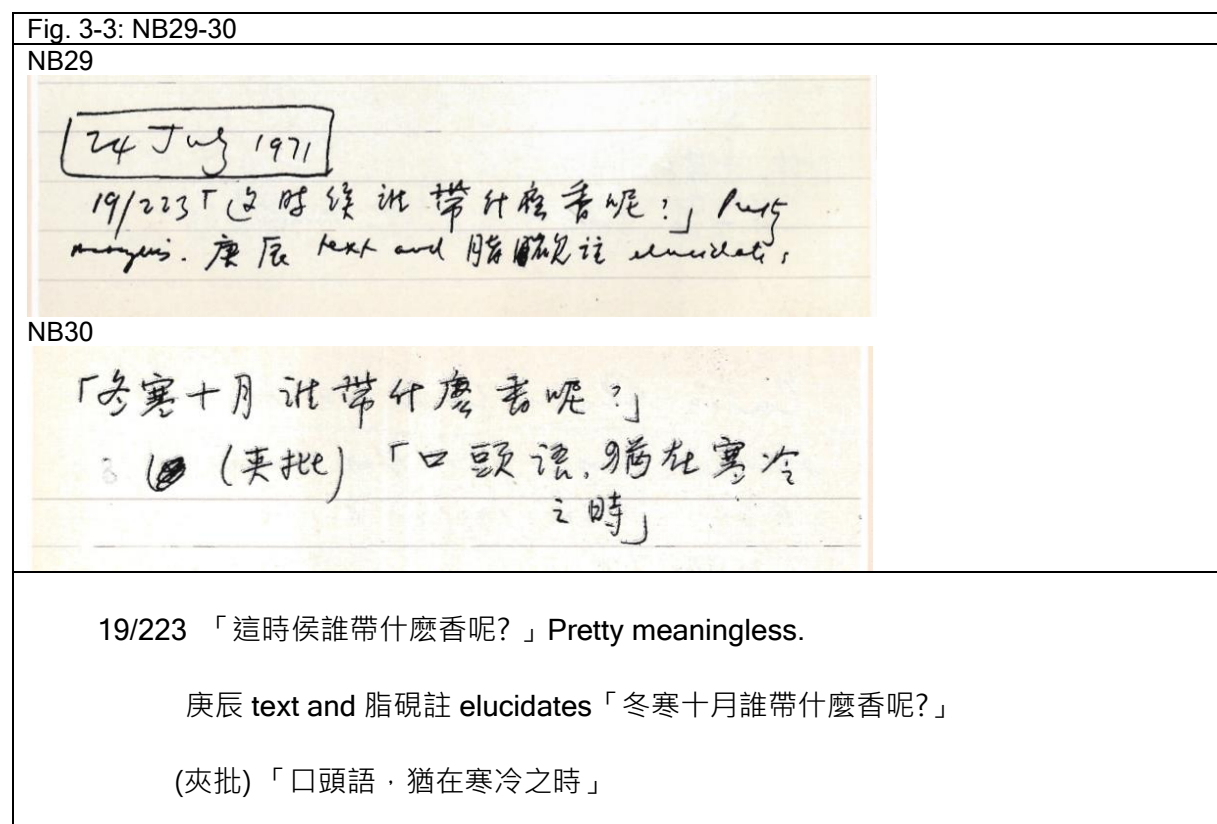 Fig. 3-3: NB29-30
NB29
24 July 1971
19/223「这时候谁带什麽香呢?」Pretty
meaningless. 庚辰 text and 脂硯註 elucidates
NB30
「冬寒十月谁带什麽香呢?」
(夹批)「口頭语,猶在寒冷
之時」
19/223 「這時侯誰帶什麽香呢? 」Pretty meaningless.
庚辰 text and 脂硯註 elucidates「冬寒十月誰帶什麼香呢?」
(夾批) 「口頭語,猶在寒冷之時」